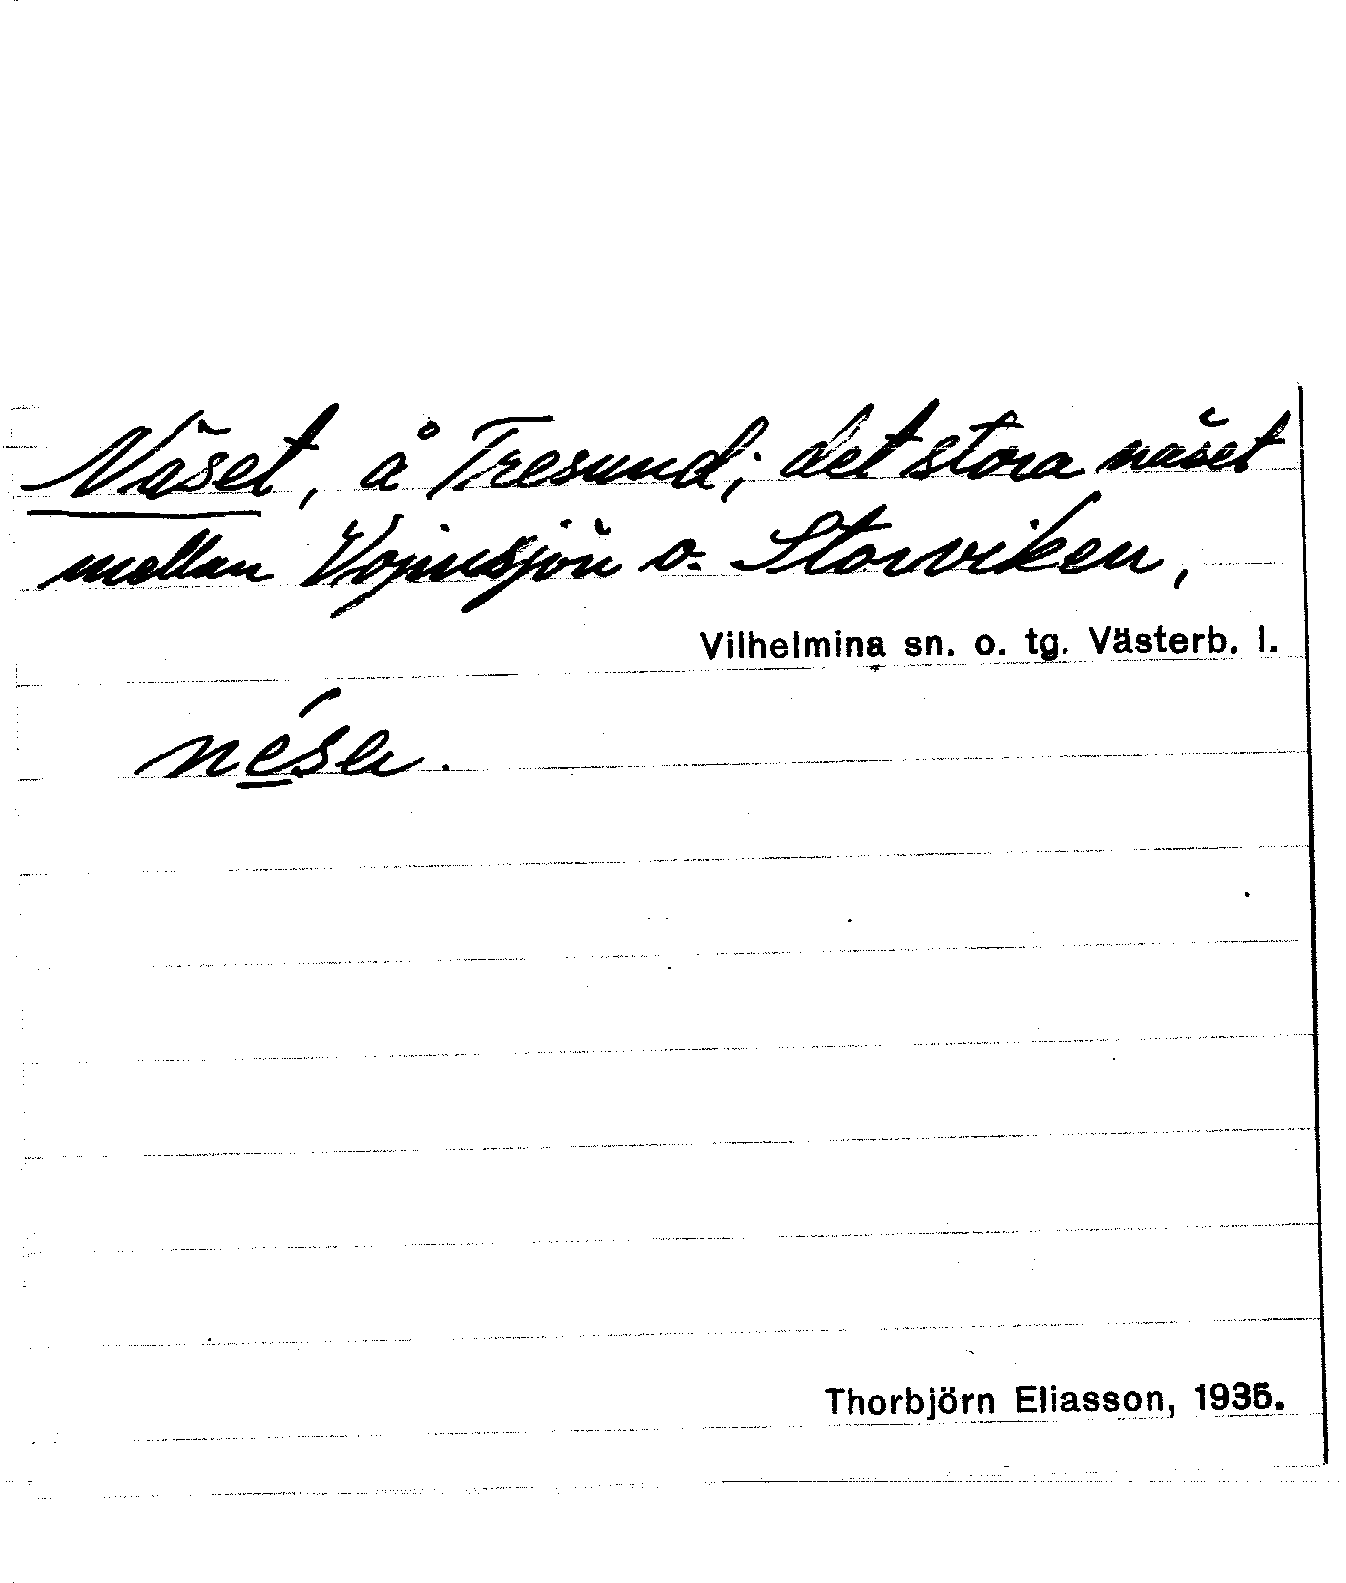 Näset, å Tresund; det stora näset
mellan Vojmsjön o. Storviken,
Vilhelmina sn. o. tg. Västerb. l.
nésa.
Thorbjörn Eliasson, 1935.